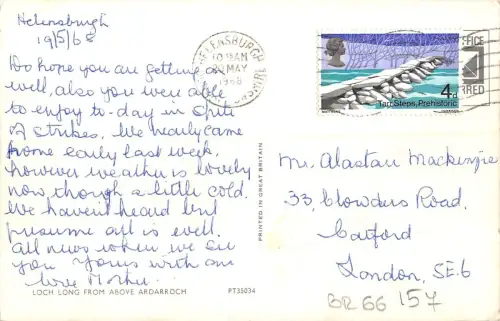 Helensburgh
19/5/68
Do hope you are getting on
well, also you were able
to enjoy to-day in spite
of strikes. We nearly came
home early last week,
however weather is lovely
now though a little cold.
We haven't heard but
presume all is well.
All news when we see
you. Yours with our
love Mother.
LOCH LONG FROM ABOVE ARDARROCH
PT35034
PRINTED IN GREAT BRITAIN
HELENSBURGH
10 15AM
MAY
1968
4d
Tarr Steps, Prehistoric
Mr. Alastair Mackenzie
33, Blowders Road,
Catford
London, S.E.6
BR66 157